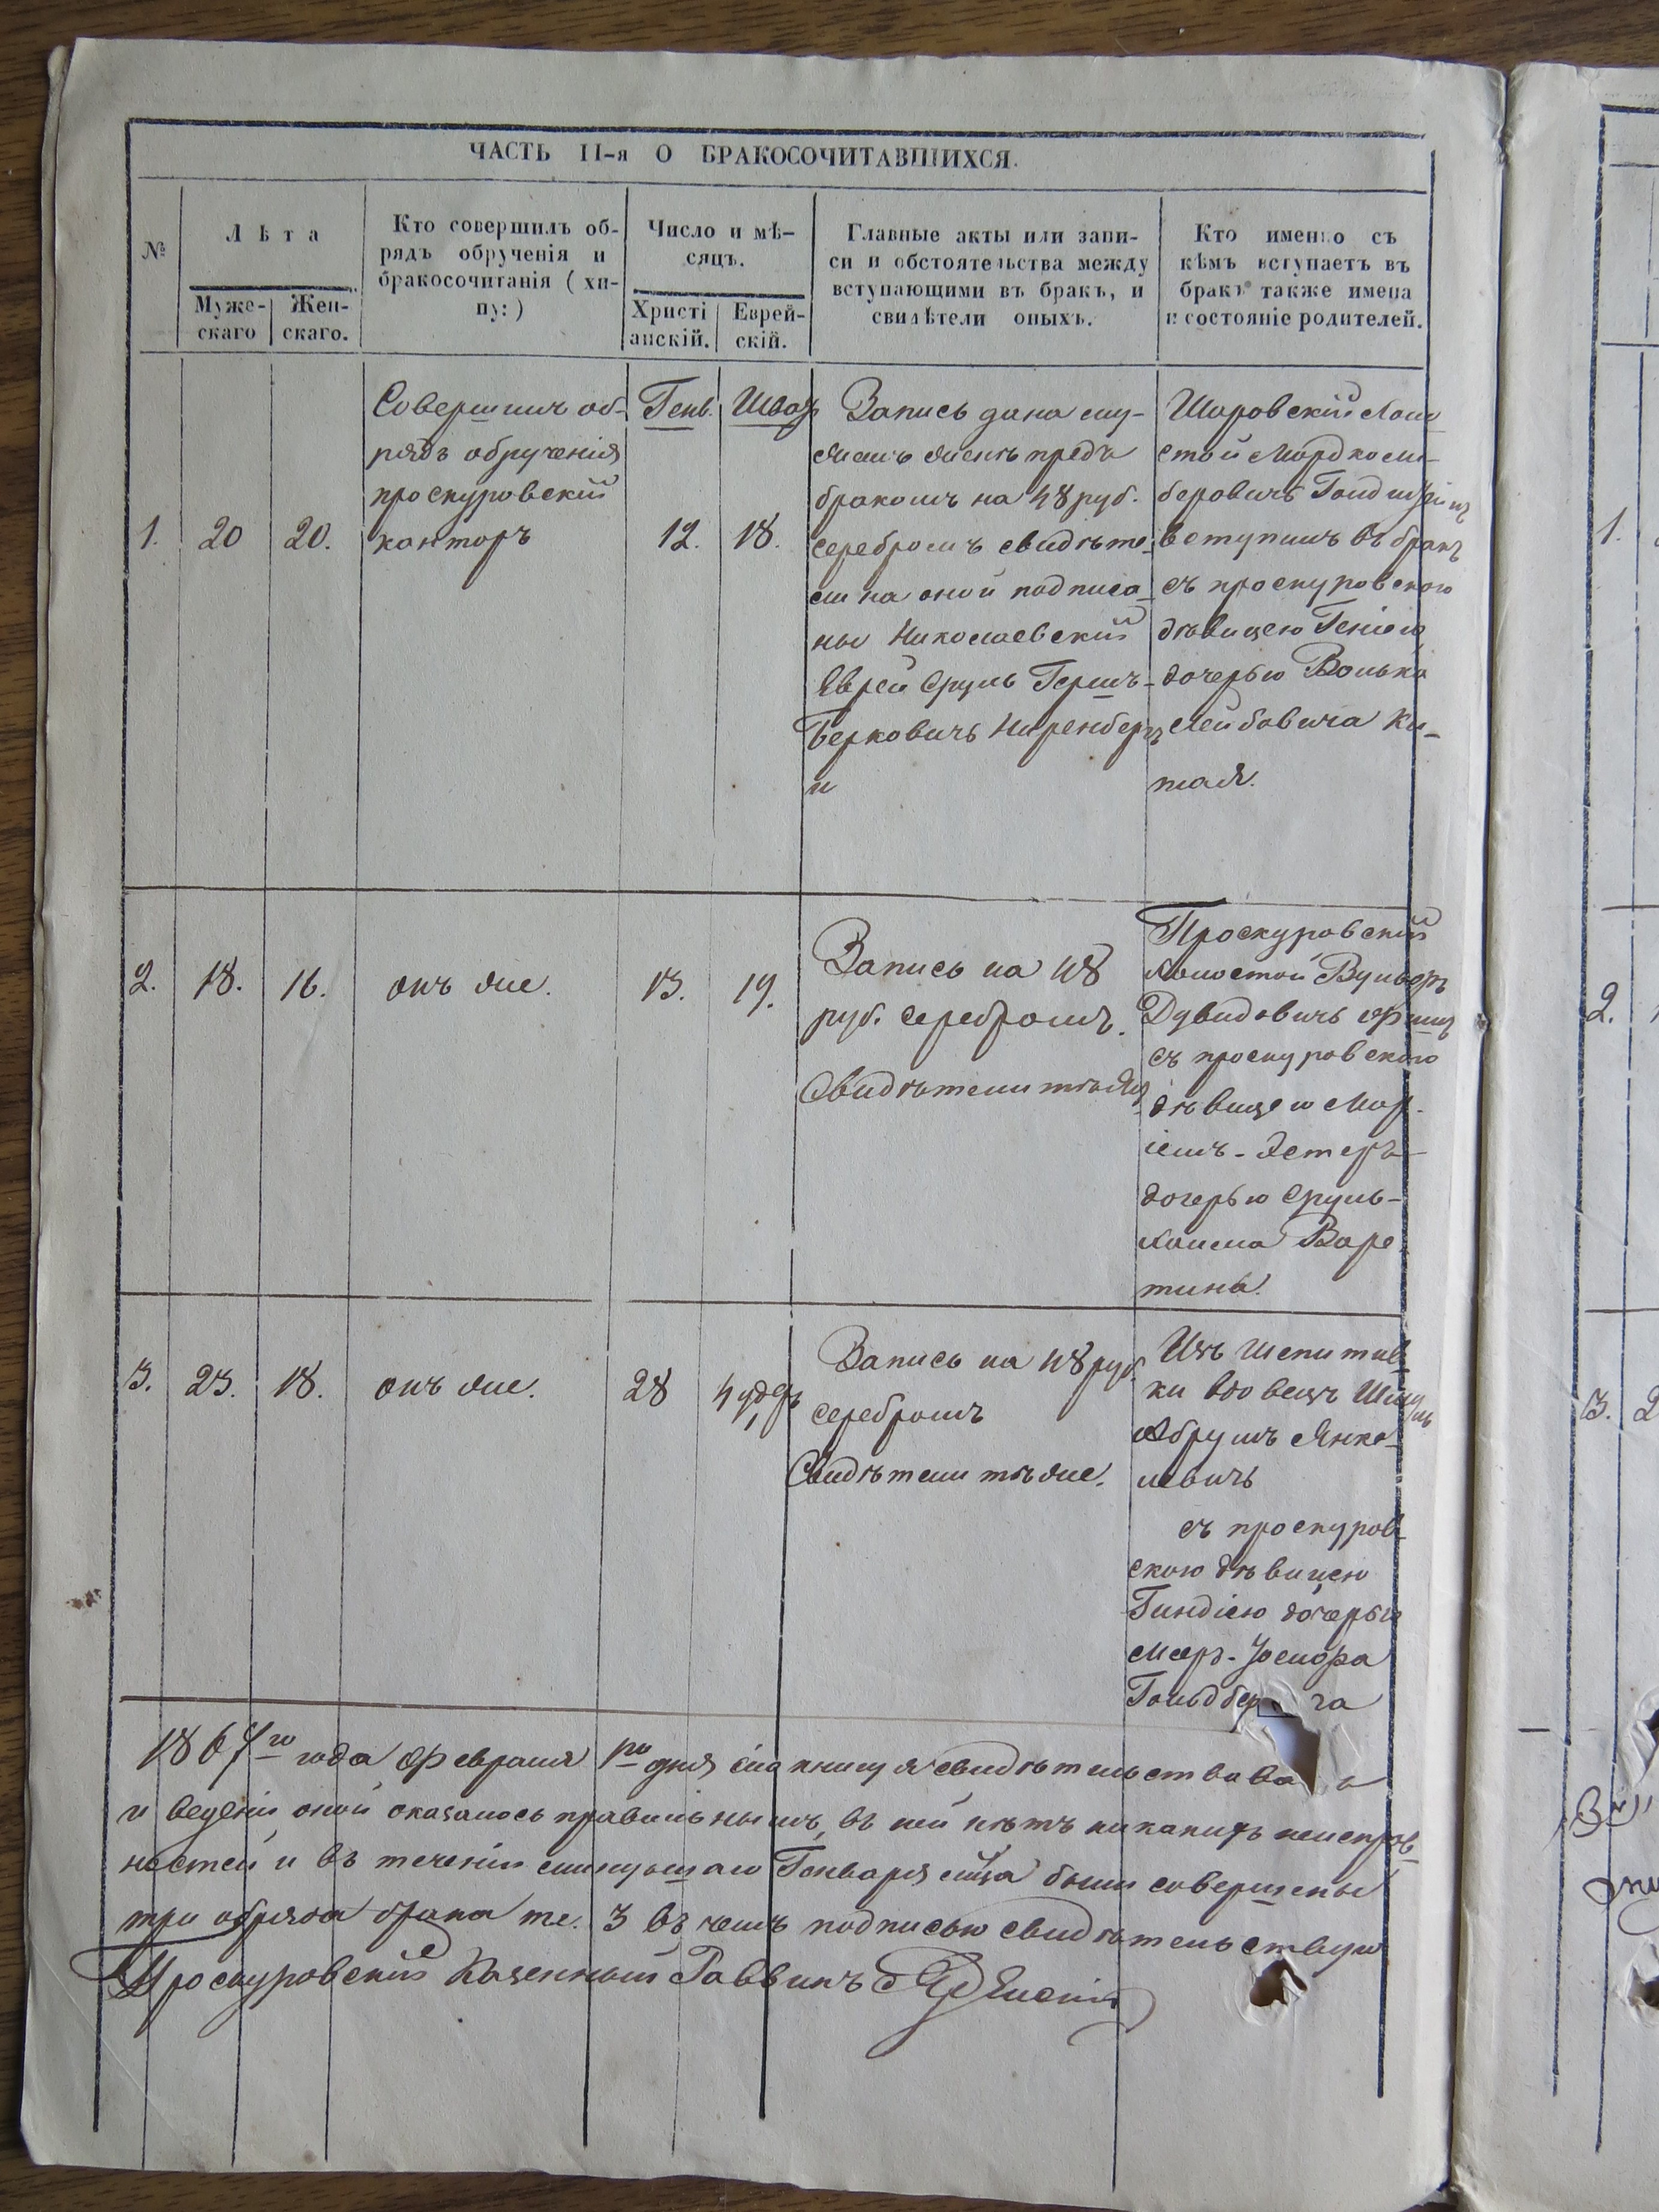 ЧАСТЬ II-я О БРАКОСОЧИТАВШИХСЯ.
№
Лѣта
Муже-
скаго
Жен-
скаго.
Кто совершилъ об-
рядъ обрученія и
бракосочитанія ( хи-
пу: )
Число и мѣ-
сяцъ.
Христі
анскій.
Еврей-
скій.
Главные акты или запи-
си и обстоятельства между
вступающими въ бракъ, и
свидѣтели оныхъ.
Кто именно съ
кѣмъ вступаетъ въ
бракъ также имена
и состояніе родителей.
1.
20
20.
Совершилъ об-
рядъ обрученія
проскуровскій
канторъ
Генв.
12.
Шват
18.
Запись дана му-
жемъ женѣ предъ
бракомъ на 48 руб.
серебромъ свидѣте-
ли на оной подписа-
ны Николаевскій
Еврей Сруль Гершъ-
Берковичъ Ниренбергъ
и
Шаровскій холо
стой Мордко
беровичъ
вступилъ въ бракъ
съ проскуровскою
дѣвицею Геніею
дочерью Волька
Лейбовича Ки-
тая.
2.
18.
16.
онъ же.
13.
19.
Запись на 48
руб. серебромъ.
Свидѣтели тѣже
Проскуровскій
холостой
Дувидовичъ
съ проскуровскою
дѣвицею Мар-
іемъ-Эстеръ
дочерью Сруль-
Хаима Варе
тина.
3.
23.
18.
онъ же.
28
4 удеръ
Запись на 48 руб.
серебромъ
Свидѣтели тѣже.
Изъ Шепитив-
ки вдовецъ
Абрумъ Янке-
левичъ
съ проскуров-
скою дѣвицею
Гиндіею дочерью
Меер-Іосифа
Гольдбе га
1867го года Февраля 1го дня сію книгу я свидѣтельствова
и веденіе оной оказалось правильнымъ, въ ней нѣтъ никакихъ неисправ-
ностей и въ теченіи минувшаго Генваря м-ца были совершены
три обряда брака т.е. 3 въ чемъ подписью свидѣтельствую
Проскуровскій Казенный Раввинъ
1.
2.
3.